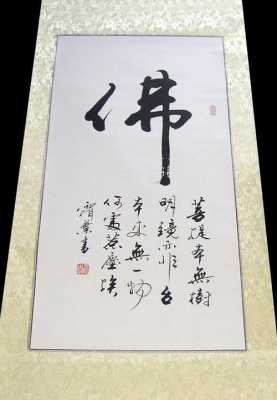 佛
菩提本無樹
明鏡亦非台
本來無一物
何處惹塵埃
書